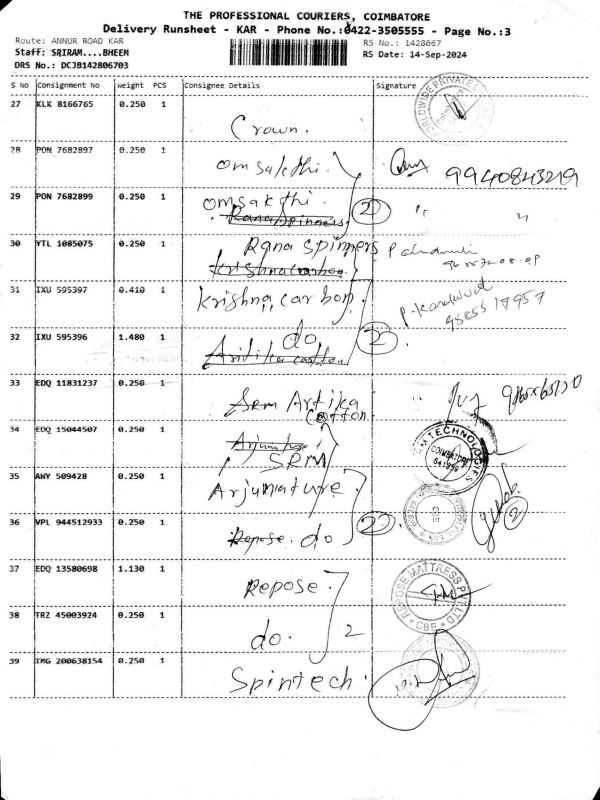 THE PROFESSIONAL COURIERS, COIMBATORE
Delivery Runsheet - KAR - Phone No.:0422-3505555 - Page No.:3
Route: ANNUR ROAD KAR
RS No.: 1428067
Staff: SRIRAM....BHEEM
RS Date: 14-Sep-2024
DRS No.: DCJB142806703
S No Consignment No Weight PCS Consignee Details Signature
27 KLK 8166765 0.250 1
Crown.
28 PON 7682897 0.250 1
omsakthi
9940843219
29 PON 7682899 0.250 1
omsakthi.
Rana Spinners
2
30 YTL 1085075 0.250 1
Rana spinners
Krishna carbon
31 IXU 595397 0.410 1
krishna carbon
32 IXU 595396 1.480 1
do
2
33 EDQ 11831237 0.250 1
Srm Artika
Cotton
34 EDQ 15044507 0.250 1
SRM
TECHNOLOGIES
COIMBATORE
641 
35 AWY 509428 0.250 1
Arjumature
36 VPL 944512933 0.250 1
Repose. do
2
2
37 EDQ 13580698 1.130 1
Repose.
REPOSE MATTRESS PVT LTD
CBE
38 TRZ 45003924 0.250 1
do.
2
39 IMG 200638154 0.250 1
Spintech.